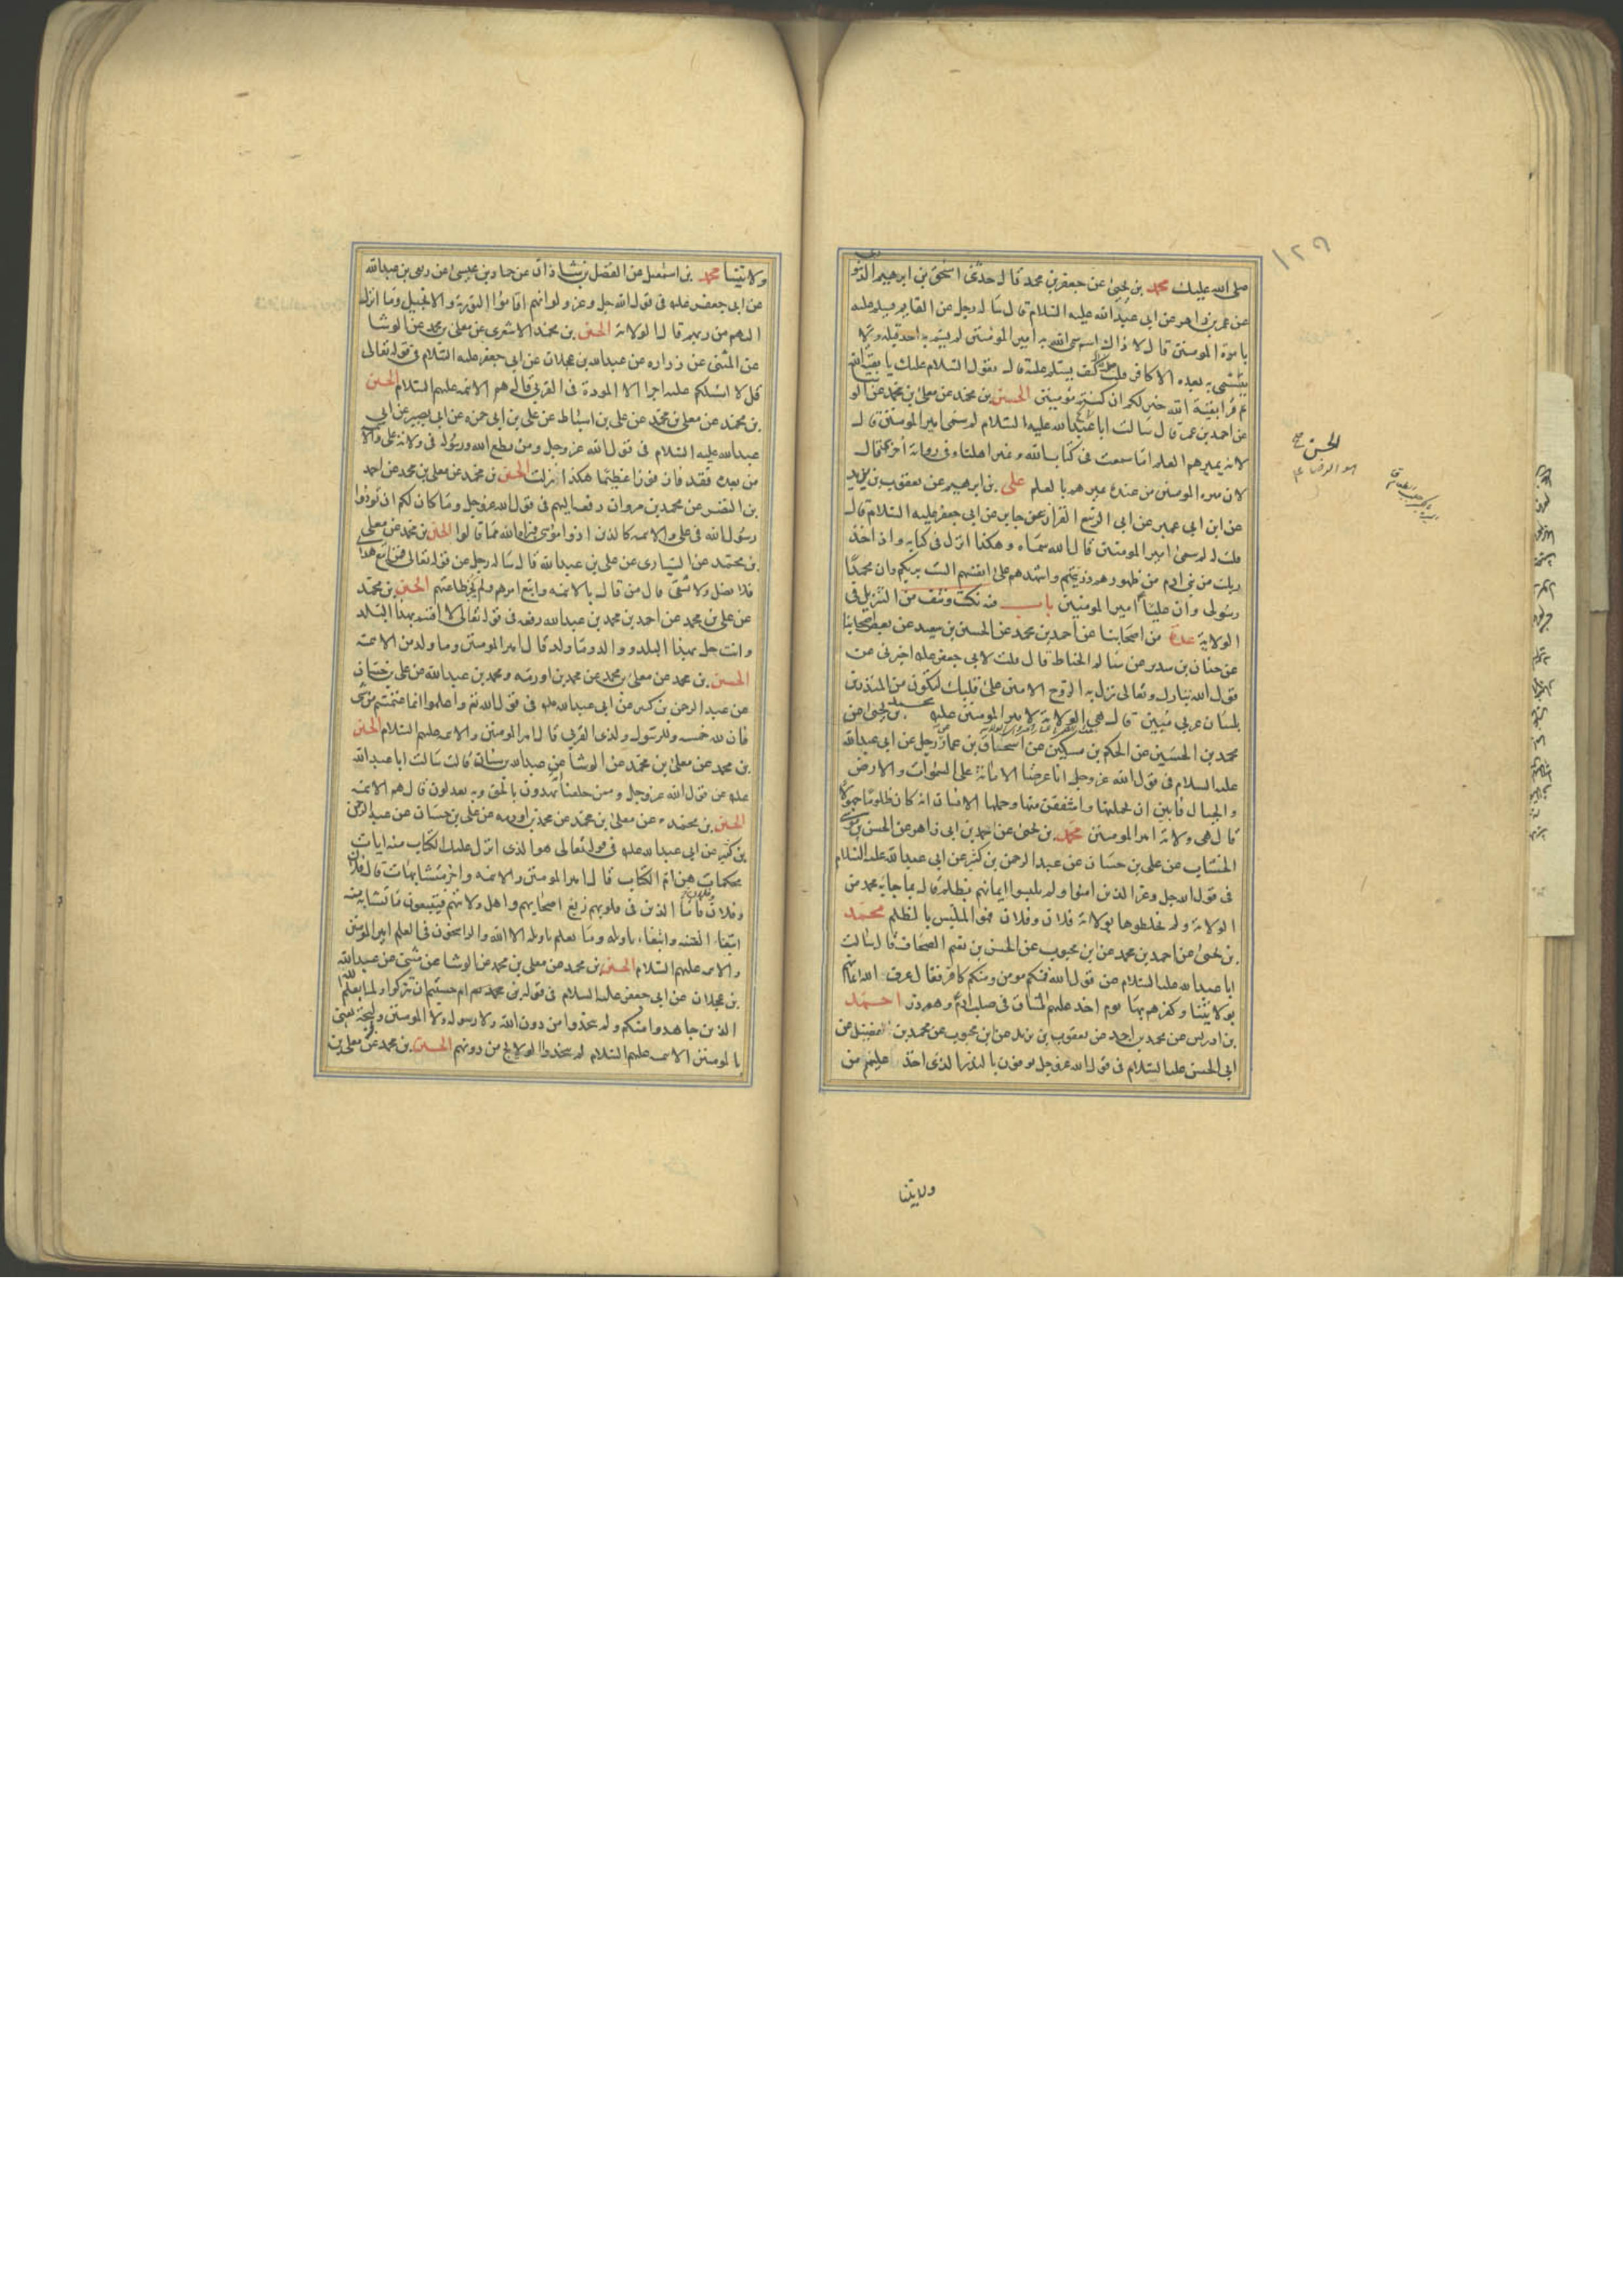 ١٢٩
صلى الله عليك محمد بن يحيى عن جعفر بن محمد قال حدثنى اسحق بن ابرهيم الدينورى
عن عمر بن زاهر عن ابى عبد الله عليه السلام قال ساله رجل عن القايم يسلم عليه
بامرة المومنين قال لا ذاك اسم سمى الله به امير المومنين لم يسم به احد قبله ولا
يتسمى به بعده الا كافر قلت جعلت فداك كيف يسلم عليه قال يقول السلام عليك يا بقية الله
ثم قرا بقية الله خير لكم ان كنتم مومنين الحسين بن محمد عن معلى بن محمد عن الوشا
عن احمد بن عمر قال سالت ابا عبد الله عليه السلام لم سمى امير المومنين قال
لانه يميرهم العلم اما سمعت فى كتاب الله ونمير اهلنا وفى رواية اخرى قال
لان ميرة المومنين من عنده يميرهم بالعلم على بن ابرهيم عن يعقوب بن يزيد
عن ابن ابى عمير عن ابى الربيع القزاز عن جابر عن ابى جعفر عليه السلام قال
قلت له لم سمى امير المومنين قال الله سماه وهكذا انزل فى كتابه واذ اخذ
ربك من بنى ادم من ظهورهم ذريتهم واشهدهم على انفسهم الست بربكم وان محمدا
رسولى وان عليا امير المومنين باب فيه نكت ونتف من التنزيل فى
الولاية عدة من اصحابنا عن احمد بن محمد عن الحسين بن سعيد عن بعض اصحابنا
عن حنان بن سدير عن سالم الحناط قال قلت لابى جعفر عليه اخبرنى عن
قول الله تبارك وتعالى نزل به الروح الامين على قلبك لتكون من المنذرين
بلسان عربى مبين قال هى الولاية لامير المومنين عليه محمد بن يحيى عن
محمد بن الحسين عن الحكم بن مسكين عن اسحاق بن عمار عن رجل عن ابى عبد الله
عليه السلام فى قول الله عز وجل انا عرضنا الامانة على السموات والارض
والجبال فابين ان يحملنها واشفقن منها وحملها الانسان انه كان ظلوما جهولا
قال هى ولاية امير المومنين محمد بن يحيى عن احمد بن ابى زاهر عن الحسن بن موسى
الخشاب عن على بن حسان عن عبد الرحمن بن كثير عن ابى عبد الله عليه السلام
فى قول الله جل وعز الذين امنوا ولم يلبسوا ايمانهم بظلم قال بما جاء به محمد من
الولاية ولم يخلطوها بولاية فلان وفلان فهو الملبس بالظلم محمد
بن يحيى عن احمد بن محمد عن ابن محبوب عن الحسن بن نعيم الصحاف قال سالت
ابا عبد الله عليه السلام عن قول الله فمنكم مومن ومنكم كافر فقال عرف الله ايمانهم
بولايتنا وكفرهم بها يوم اخذ عليهم الميثاق فى صلب ادم وهم ذر احمد
بن ادريس عن محمد بن احمد عن يعقوب بن يزيد عن ابن محبوب عن محمد بن الفضيل عن
ابى الحسن عليه السلام فى قول الله عز وجل يوفون بالنذر الذى اخذ عليهم من
ولايتنا
الحسن
ابو الرضا ع
ولايتنا محمد بن اسمعيل عن الفضل بن شاذان عن حماد بن عيسى عن ربعى بن عبد الله
عن ابى جعفر عليه فى قول الله جل وعز ولو انهم اقاموا التورية والانجيل وما انزل
اليهم من ربهم قال الولاية الحسين بن محمد الاشعرى عن معلى بن محمد عن الوشا
عن المثنى عن زراره عن عبد الله بن عجلان عن ابى جعفر عليه السلام فى قوله تعالى
قل لا اسئلكم عليه اجرا الا المودة فى القربى قال هم الائمه عليهم السلام الحسين
بن محمد عن معلى بن محمد عن على بن اسباط عن على بن ابى حمزه عن ابى بصير عن ابى
عبد الله عليه السلام فى قول الله عز وجل ومن يطع الله ورسوله فى ولاية على والائمة
من بعده فقد فاز فوزا عظيما هكذا نزلت الحسين بن محمد عن معلى بن محمد عن احمد
بن النضر عن محمد بن مروان رفعه اليهم فى قول الله عز وجل وما كان لكم ان تؤذوا
رسول الله فى على والائمه كالذين اذوا موسى فبراه الله مما قالوا الحسين بن محمد عن معلى
بن محمد عن السيارى عن على بن عبد الله قال ساله رجل عن قوله تعالى فمن اتبع هداى
فلا يضل ولا يشقى قال من قال بالائمه واتبع امرهم ولم يجز طاعتهم الحسين بن محمد
عن على بن محمد عن احمد بن محمد بن عبد الله رفعه فى قوله تعالى لا اقسم بهذا البلد
وانت حل بهذا البلد ووالد وما ولد قال امير المومنين وما ولد من الائمه
الحسين بن محمد عن معلى بن محمد عن محمد بن اورمه ومحمد بن عبد الله عن على بن حسان
عن عبد الرحمن بن كثير عن ابى عبد الله عليه فى قول الله تعالى واعلموا انما غنمتم من شى
فان لله خمسه وللرسول ولذى القربى قال امير المومنين والائمه عليهم السلام الحسين
بن محمد عن معلى بن محمد عن الوشا عن عبد الله بن سنان قال سالت ابا عبد الله
عليه عن قول الله عز وجل وممن خلقنا امة يهدون بالحق وبه يعدلون قال هم الائمه
الحسين بن محمد عن معلى بن محمد عن محمد بن اورمه عن على بن حسان عن عبد الرحمن
بن كثير عن ابى عبد الله عليه فى قوله تعالى هو الذى انزل عليك الكتاب منه ايات
محكمات هن ام الكتاب قال امير المومنين والائمه واخر متشابهات قال فلان
وفلان فاما الذين فى قلوبهم زيغ اصحابهم واهل ولايتهم فيتبعون ما تشابه منه
ابتغاء الفتنه وابتغاء تاويله وما يعلم تاويله الا الله والراسخون فى العلم امير المومنين
والائمه عليهم السلام الحسين بن محمد عن معلى بن محمد عن الوشا عن مثنى عن عبد الله
بن عجلان عن ابى جعفر عليه السلام فى قوله ام حسبتم ان تتركوا ولما يعلم الله
الذين جاهدوا منكم ولم يتخذوا من دون الله ولا رسوله ولا المومنين وليجة يعنى
بالمومنين الائمه عليهم السلام لم يتخذوا الولايج من دونهم الحسين بن محمد عن معلى بن